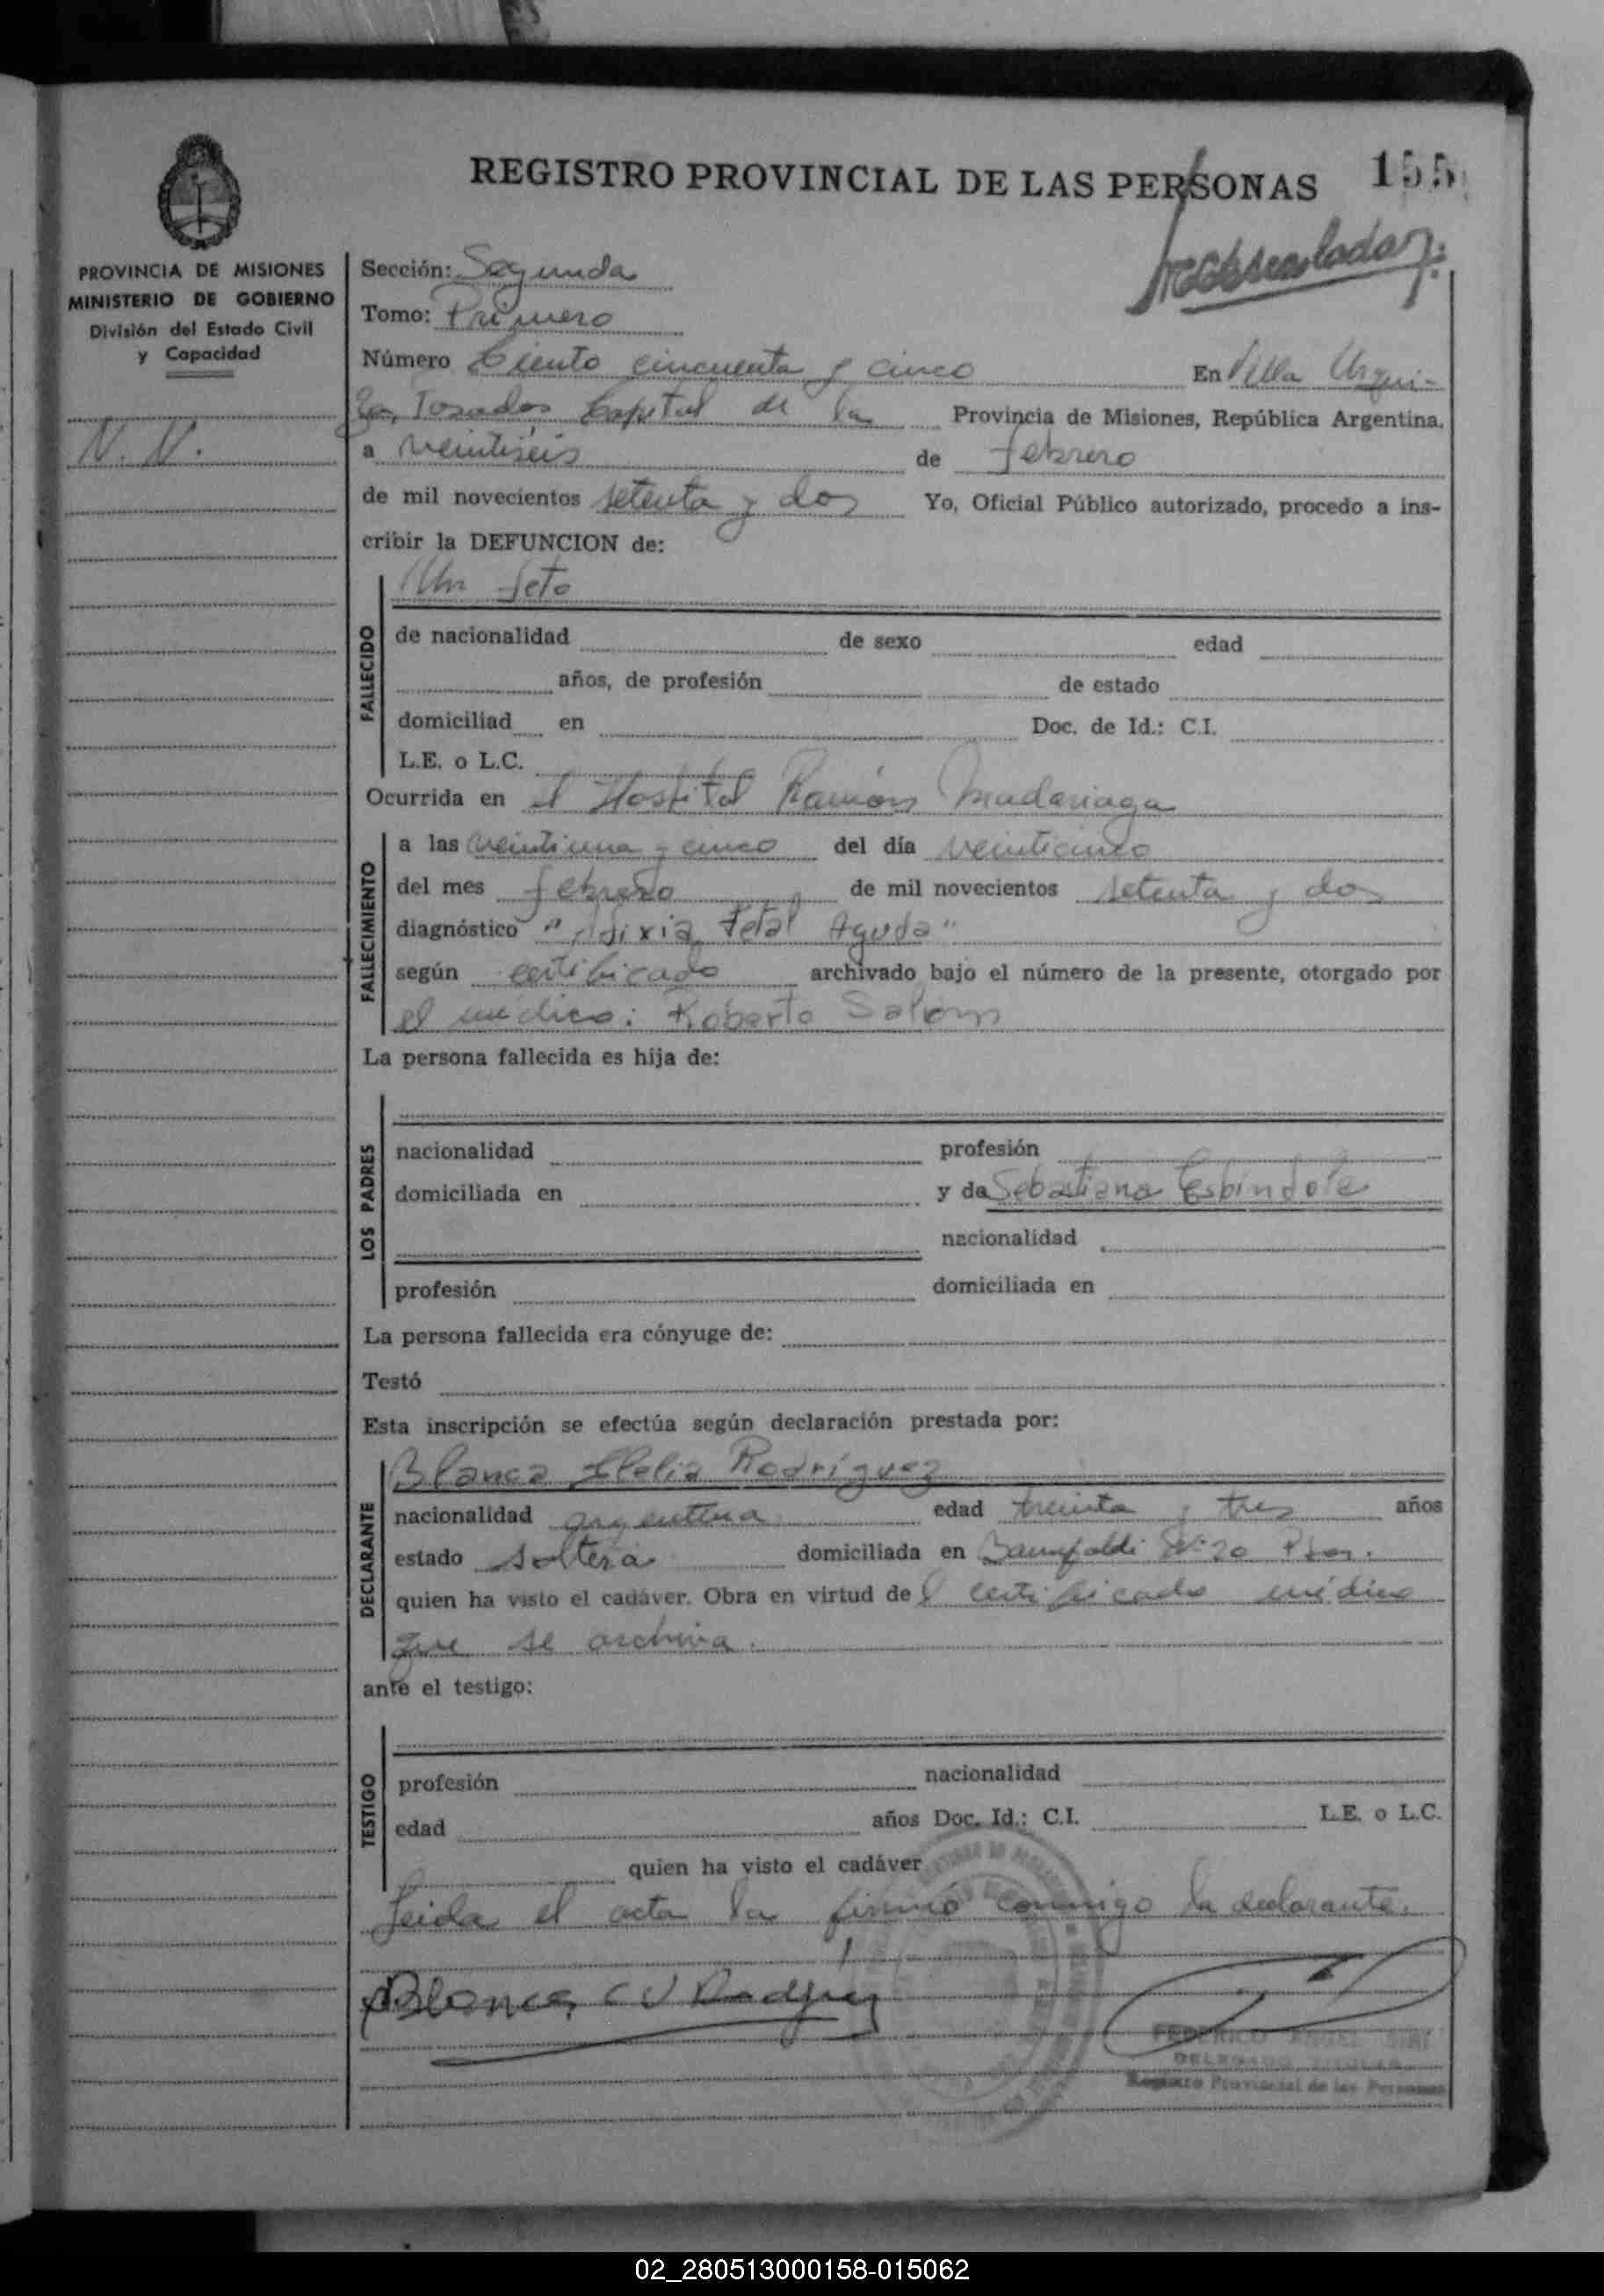 REGISTRO PROVINCIAL DE LAS PERSONAS 155
PROVINCIA DE MISIONES
MINISTERIO DE GOBIERNO
División del Estado Civil
y Capacidad
N. N.
Sección: Segunda
Tomo: Primero
Número Ciento cincuenta y cinco En Villa Urqui-
za, Posadas Capital de la Provincia de Misiones, República Argentina,
a veintiséis de febrero
de mil novecientos setenta y dos Yo, Oficial Público autorizado, procedo a ins-
cribir la DEFUNCION de:
Un feto
FALLECIDO
de nacionalidad de sexo edad
años, de profesión de estado
domiciliad en Doc. de Id.: C.I.
L.E. o L.C.
Ocurrida en el Hospital Ramón Madariaga
FALLECIMIENTO
a las veintiuna y cinco del día veinticinco
del mes febrero de mil novecientos setenta y dos
diagnóstico "Asfixia Fetal Aguda"
según certificado archivado bajo el número de la presente, otorgado por
el médico: Roberto
La persona fallecida es hija de:
LOS PADRES
nacionalidad profesión
domiciliada en y de Sebastiana Espíndola
nacionalidad
profesión domiciliada en
La persona fallecida era cónyuge de:
Testó
Esta inscripción se efectúa según declaración prestada por:
DECLARANTE
Blanca Rodríguez
nacionalidad argentina edad treinta y tres años
estado soltera domiciliada en
quien ha visto el cadáver. Obra en virtud del certificado médico
que se archiva.
ante el testigo:
TESTIGO
profesión nacionalidad
edad años Doc. Id.: C.I. L.E. o L.C.
quien ha visto el cadáver
Leída el acta la firmó conmigo la declarante.
Blanca
FEDERICO
Registro Provincial de las Personas
02_280513000158-015062